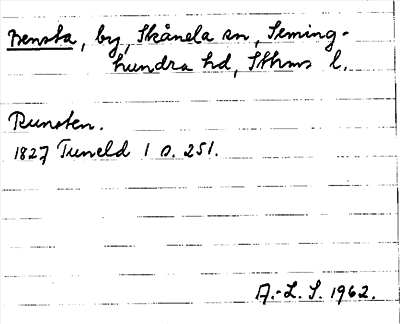 Bensta, by, Skånela sn, Seming-
hundra hd, Sthms l.
Runsten.
1827 Tuneld 1 s. 251.
A.-L. S. 1962.